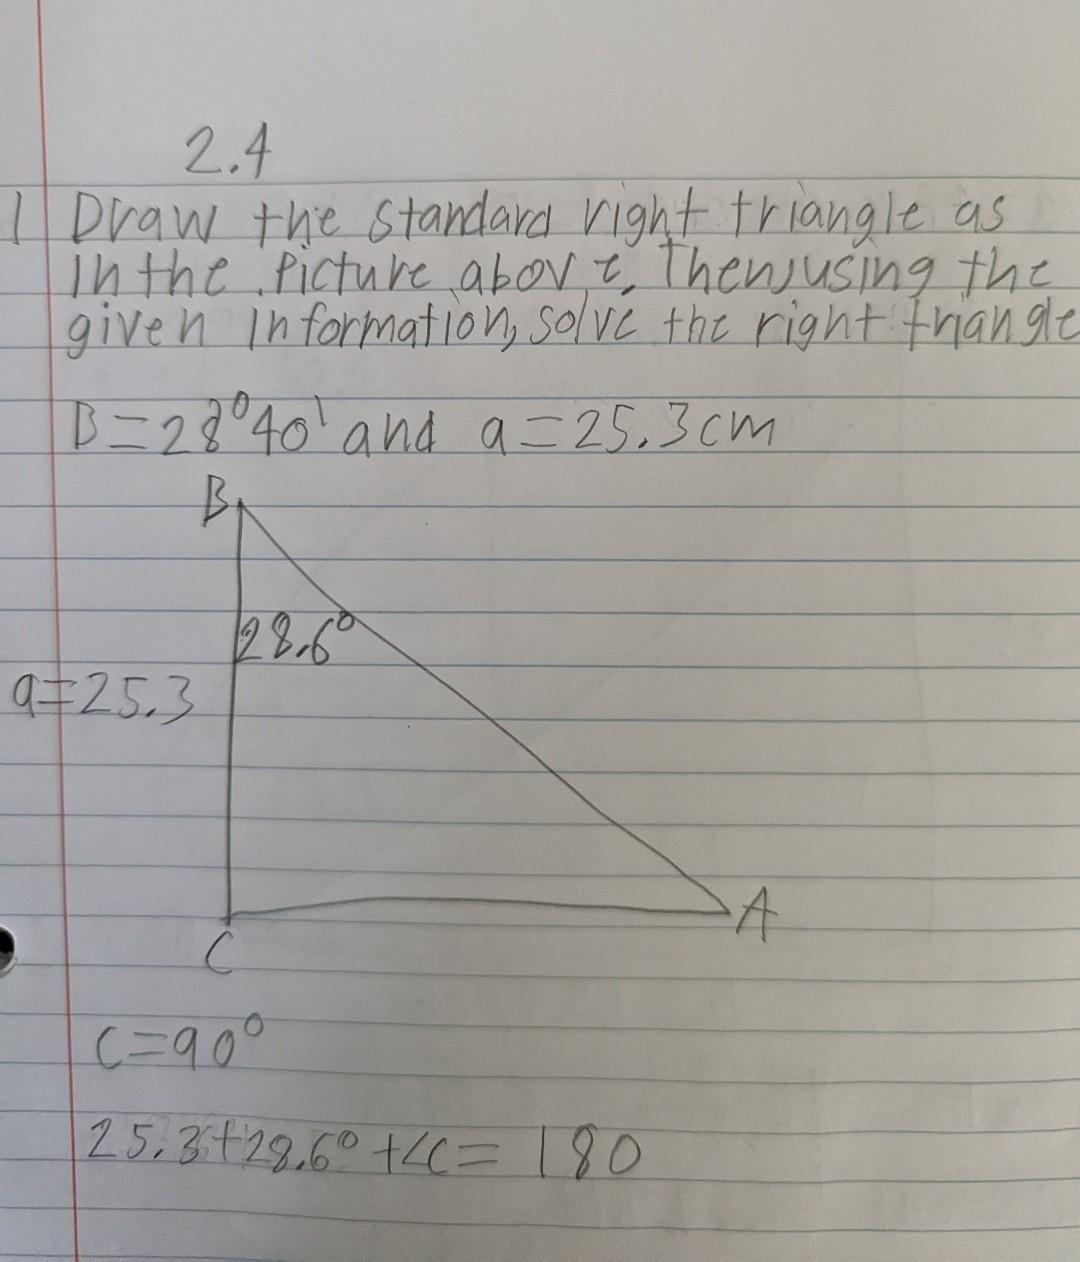 2.4
1 Draw the standard right triangle as
in the picture above. Then, using the
given information, solve the right triangle
B=28°40' and a=25.3cm
B
28.6°
a=25.3
A
C
C=90°
25.3+28.6°+∠C=180